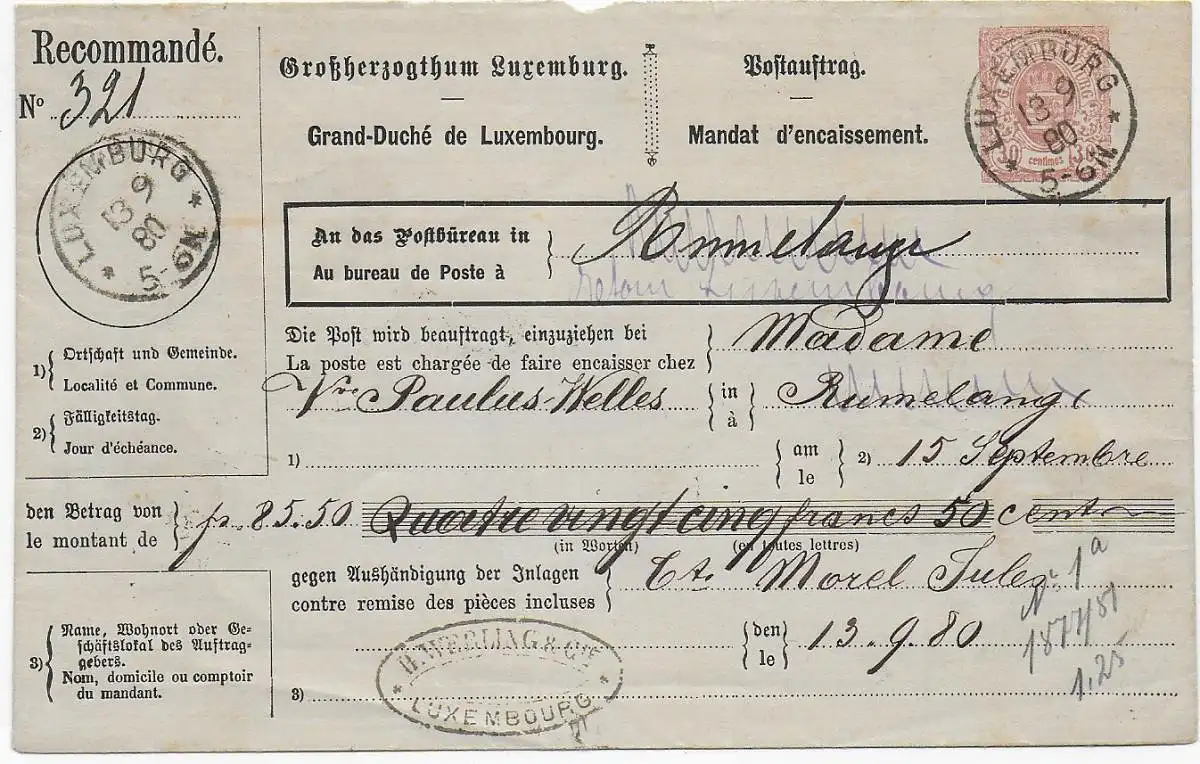 Recommandé.
Nº 321
LUXEMBURG
13 9
80
5-6N
1) Ortschaft und Gemeinde.
Localité et Commune.
2) Fälligkeitstag.
Jour d'échéance.
Großherzogthum Luxemburg.
Grand-Duché de Luxembourg.
Postauftrag.
Mandat d'encaissement.
LUXEMBURG
13 9
80
5-6N
30 centimes 30
An das Postbüreau in
Au bureau de Poste à
Rumelange
Retour Luxembourg
Die Post wird beauftragt, einzuziehen bei
La poste est chargée de faire encaisser chez
Madame
Vve Paulus-Welles in à Rumelange
1) am le 2) 15 Septembre
den Betrag von
le montant de
fr 85.50 Quatre vingt cinq francs 50 cent
(in Worten) (en toutes lettres)
gegen Aushändigung der Inlagen
contre remise des pièces incluses
Ct. Morel Jules
den le 13.9.80
Nr 1a
1877/81
1.25
3) Name, Wohnort oder Ge-
schäftslokal des Auftrag-
gebers.
Nom, domicile ou comptoir
du mandant.
3)
H. WERLING & Cie
LUXEMBOURG